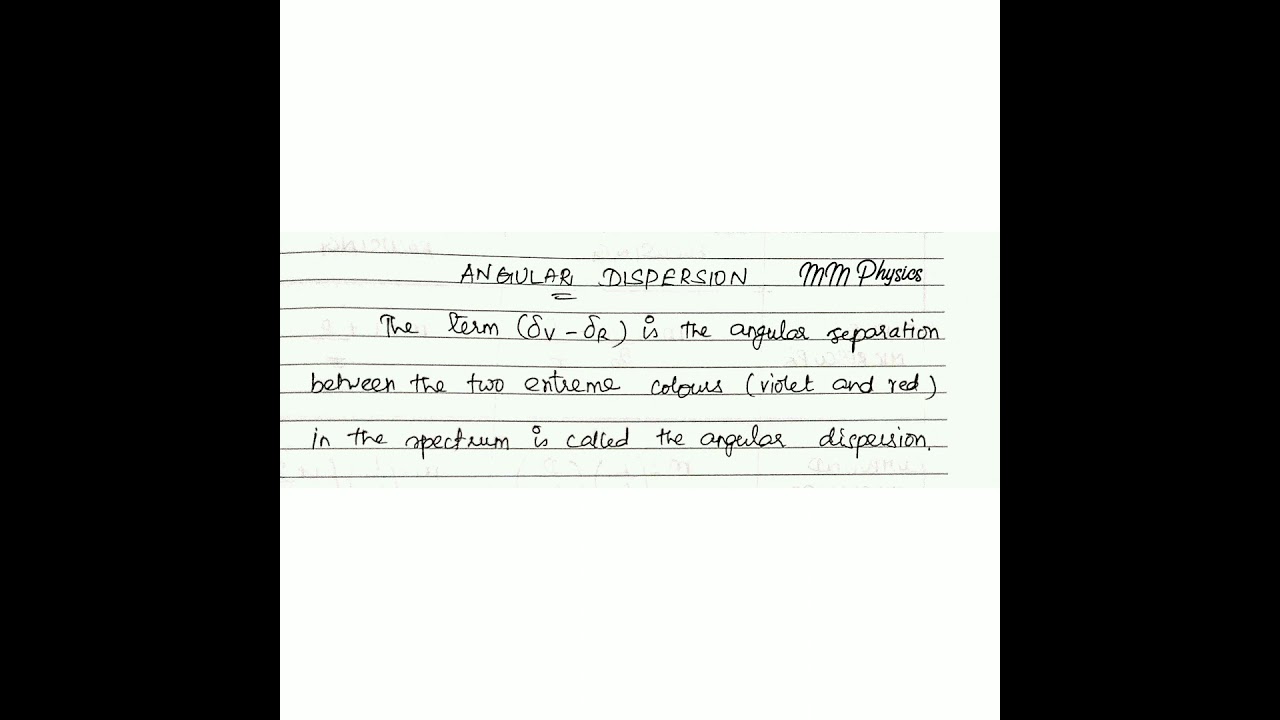 ANGULAR DISPERSION MM Physics
The term (δV - δR) is the angular separation
between the two extreme colours (violet and red)
in the spectrum is called the angular dispersion.